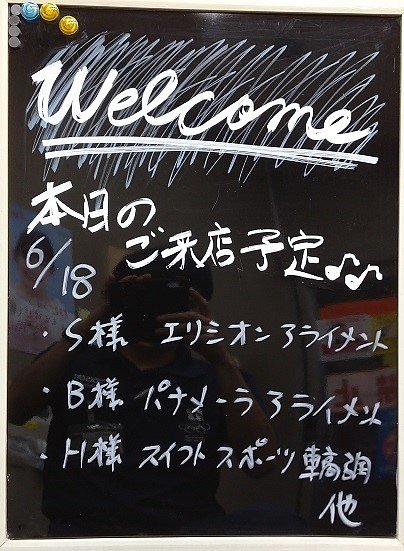 Welcome
本日の
6/18
ご来店予定♪♫
・S様 エリシオン アライメント
・B様 パナメーラ アライメント
・H様 スイフトスポーツ 車高調
他